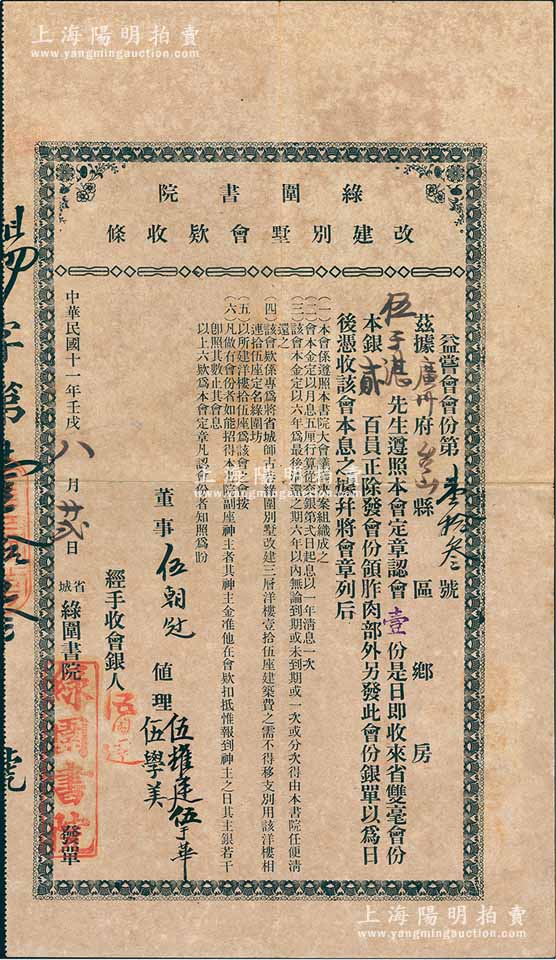 上海陽明拍賣
www.yangmingauction.com
綠圍書院
改建別墅會欵收條
益嘗會會份第壹拾叁號
茲據廣州府台山縣 區 鄉 房
伍于湛 先生遵照本會定章認會壹份是日即收來省雙毫會份
本銀貳 百員正除發會份領胙肉部外另發此會份銀單以為日
後憑收該會本息之據幷將會章列后
（一）本會係遵照本書院大會議決案組織成之
（二）會本金定以月息五厘行算從交銀第弍日起息以一年清息一次
（三）該會本金定以六年為最後清還之期六年以內無論到期或未到期或一次或分次得由本書院任便清
還之
（四）該會欵係專為將省城師古巷綠圍別墅改建三層洋樓壹拾伍座建築費之需不得移支別用該洋樓相
連拾伍座定名綠圍坊
（五）以所建洋樓拾伍座為該會欵會按
（六）凡做有會份者如能招得本書院副座神主者其神主金准他在會欵扣抵惟報到神主之日其主銀若干
卽照其數止其會息
以上六欵為本會定章凡認會份者知照為盼
董事 伍朝 値理 伍權廷 伍于華
伍學美
經手收會銀人
中華民國十一年壬戌八月廿弍日 省城綠圍書院 發單
綠圍書院
字第 號
上海陽明拍賣
www.yangmingauction.com